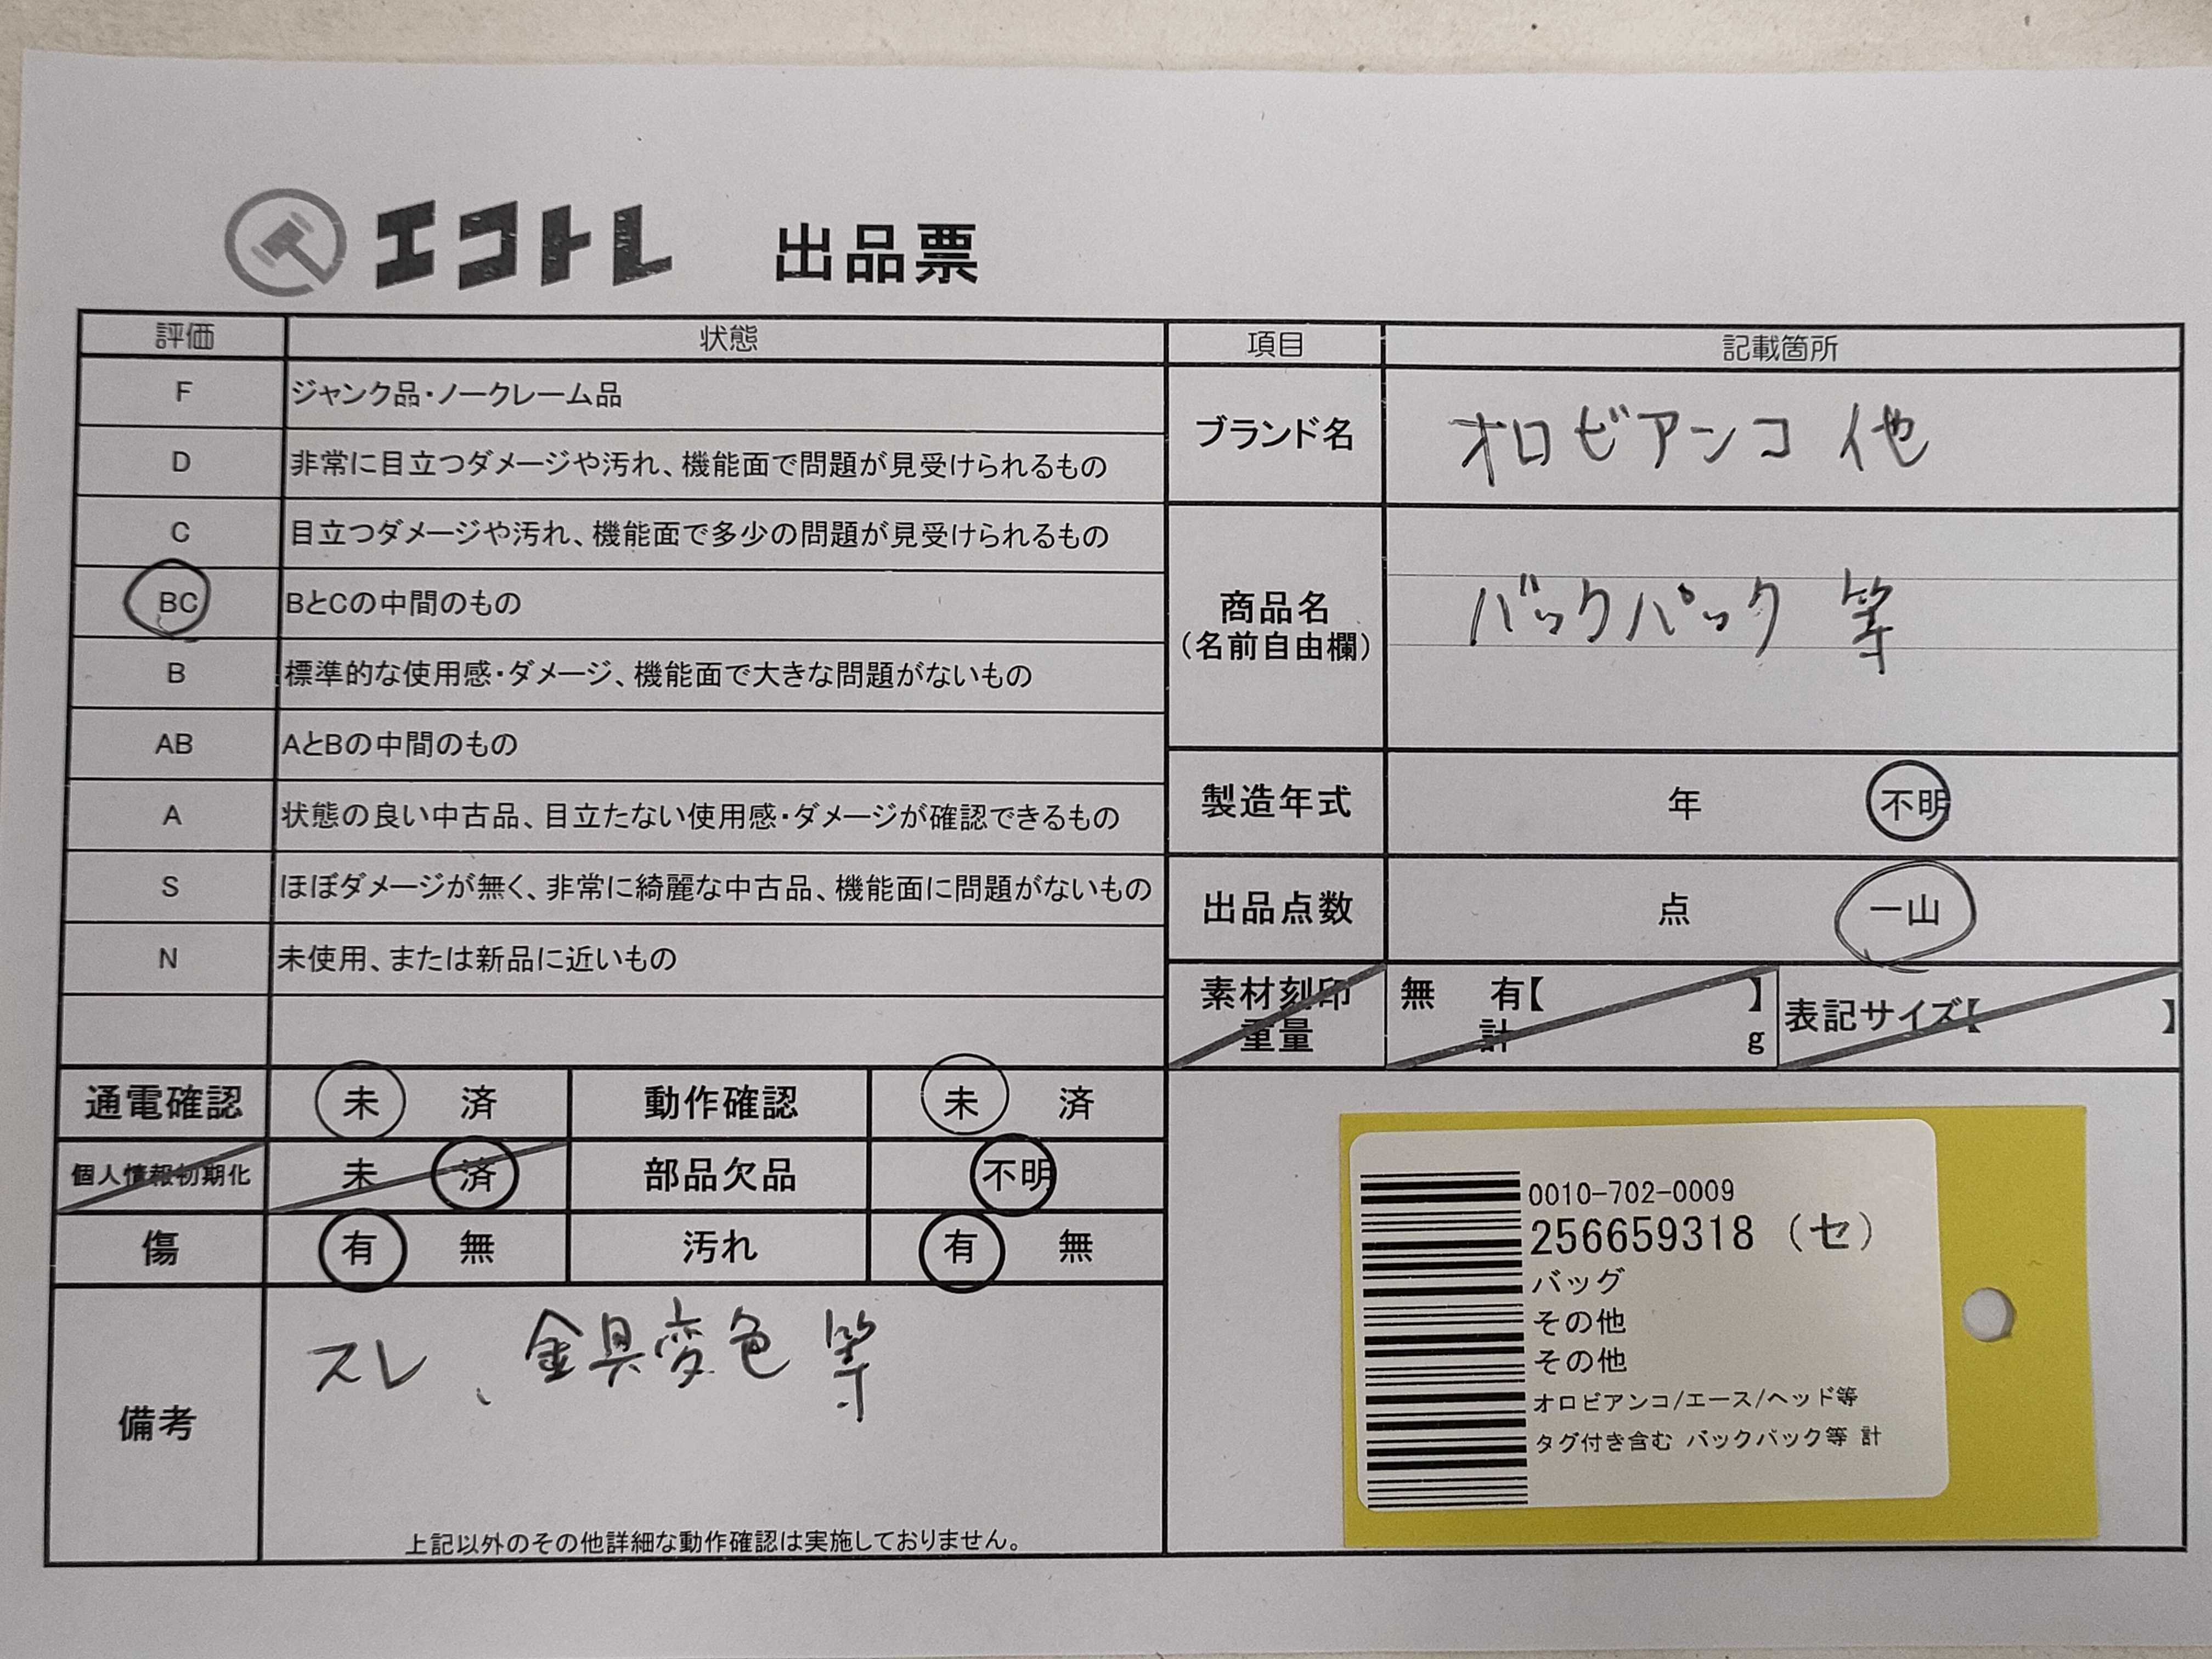 エコトレ 出品票
評価 状態
F ジャンク品・ノークレーム品
D 非常に目立つダメージや汚れ、機能面で問題が見受けられるもの
C 目立つダメージや汚れ、機能面で多少の問題が見受けられるもの
BC BとCの中間のもの
B 標準的な使用感・ダメージ、機能面で大きな問題がないもの
AB AとBの中間のもの
A 状態の良い中古品、目立たない使用感・ダメージが確認できるもの
S ほぼダメージが無く、非常に綺麗な中古品、機能面に問題がないもの
N 未使用、または新品に近いもの
通電確認 未 済 動作確認 未 済
個人情報初期化 未 済 部品欠品 不明
傷 有 無 汚れ 有 無
備考 スレ、金具変色 等
上記以外のその他詳細な動作確認は実施しておりません。
項目 記載箇所
ブランド名 オロビアンコ 他
商品名 バックパック 等
(名前自由欄)
製造年式 年 不明
出品点数 点 一山
素材刻印 無 有【 】 表記サイズ【 】
重量 計 g
0010-702-0009
256659318 (セ)
バッグ
その他
その他
オロビアンコ/エース/ヘッド等
タグ付き含む バックパック等 計